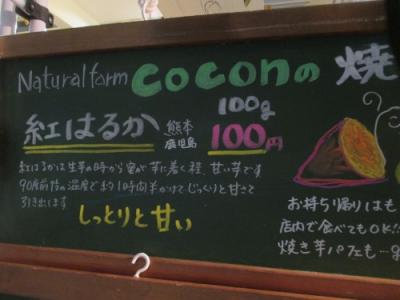 Natural farm coconの 焼
紅はるか 熊本 鹿児島 100g 100円
紅はるかは生芋の時から蜜が芋に着く程、甘い芋です
90度前後の温度で約1時間半かけてじっくりと甘さを
引き出します
しっとりと甘い
お持ち帰りはも
店内で食べてもOK!!
焼き芋パフェも…